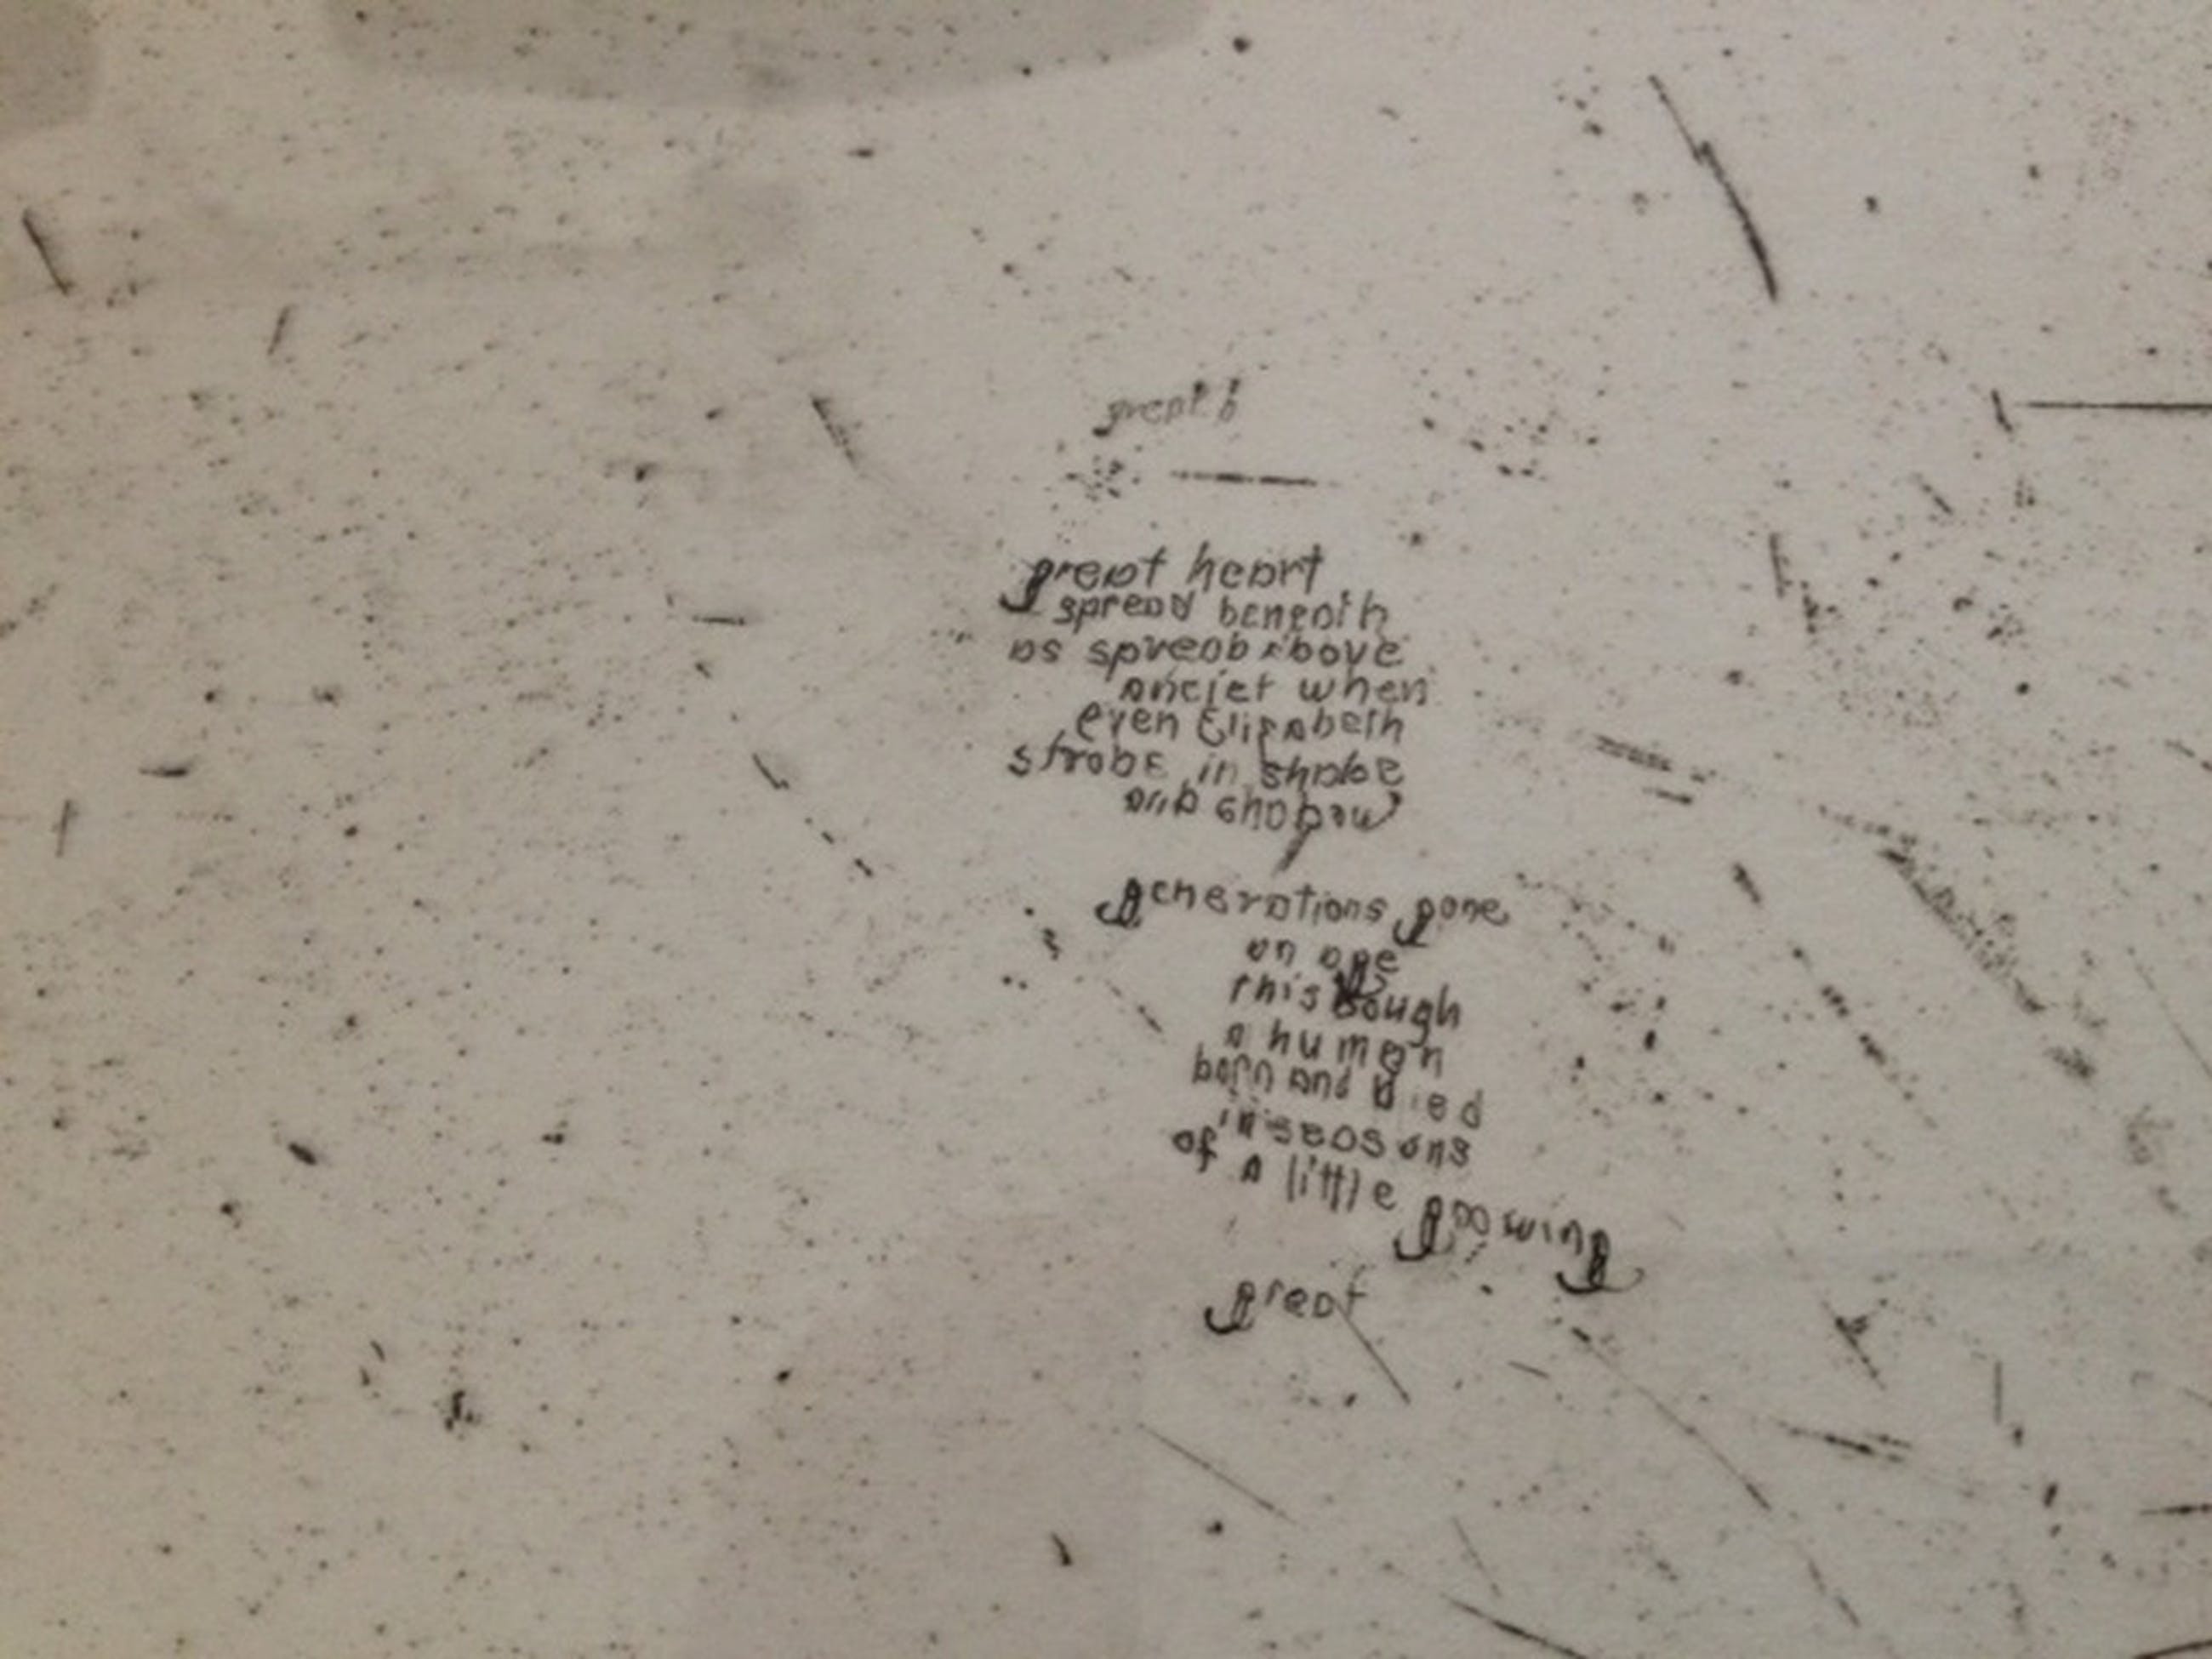 great!
great heart
spread beneath
as spread above
anciet when
even Elizabeth
strode in shade
and shadow
generations gone
an age
this bough
a human
born and died
in seasons
of a little
great